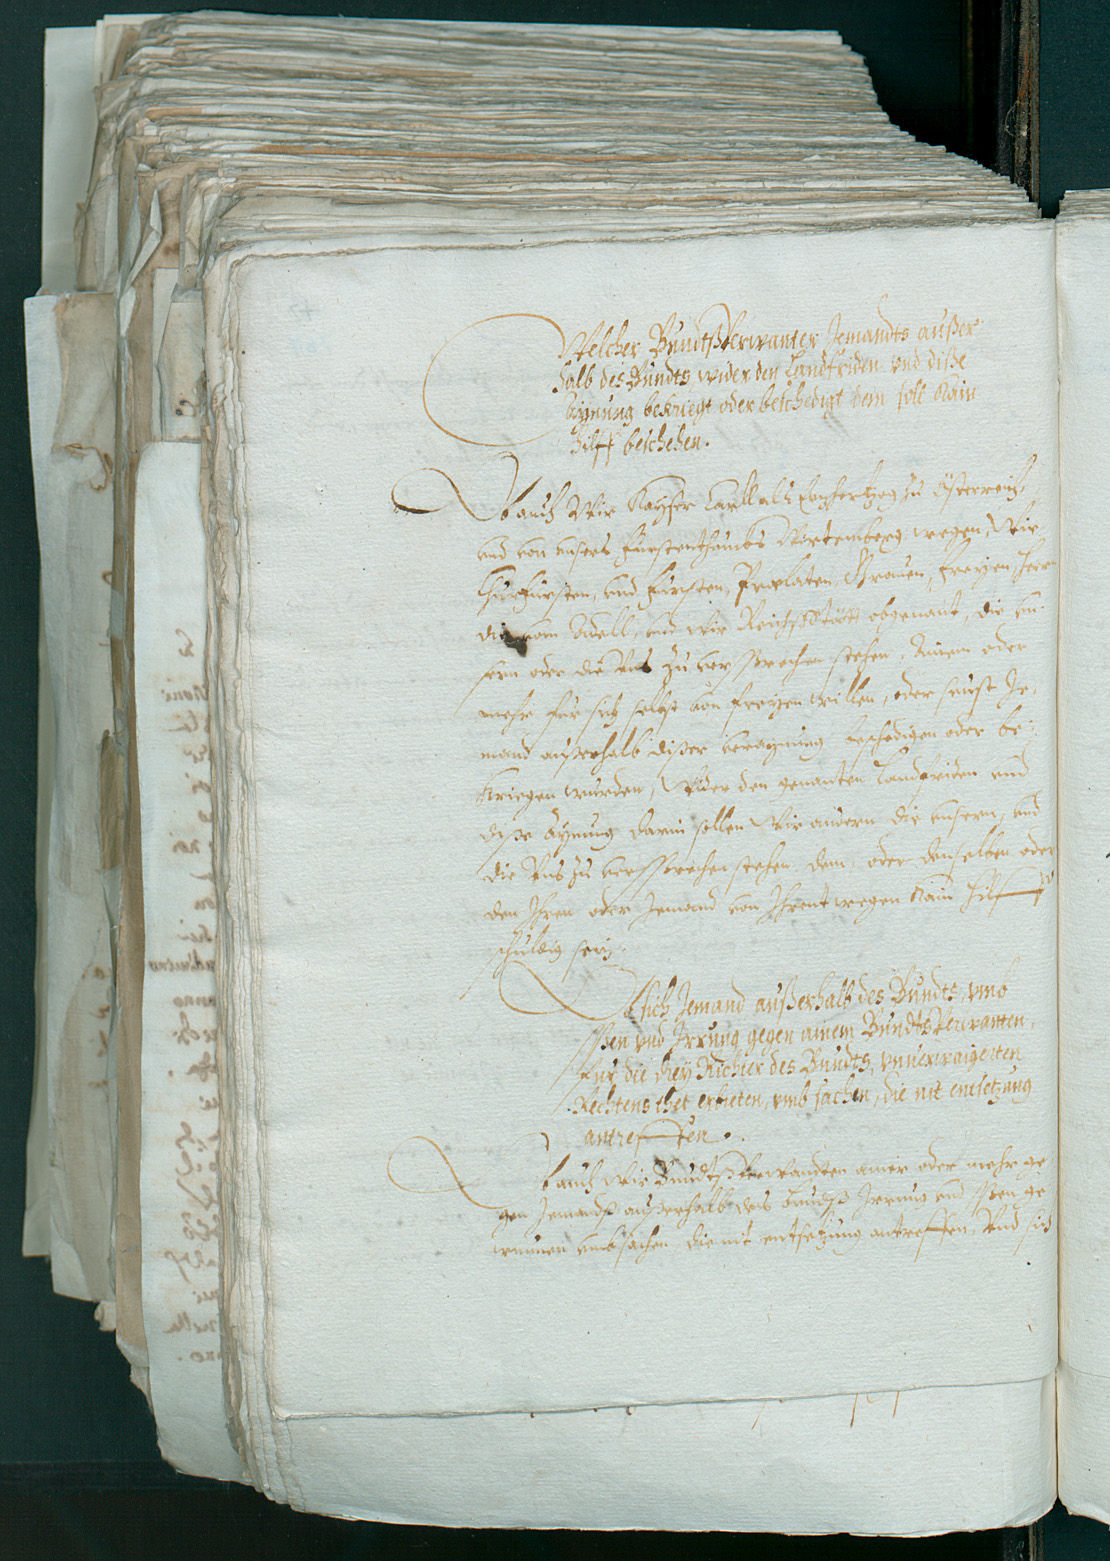 Welcher Bundtßverwanter Jemandts außer
halb des Bundts wider den Landtfriden vnd diße
Aÿnung bekriegt oder beschedigt dem soll Kain
Hilff beschehen.
Ob auch Wir Kayser Carll als Ertzhertzog zu Österreich
vnd von vnsers Fürstenthumbs Wirtemberg wegen, Wir
Churfürsten, vnd Fürsten, Praelaten, Grauen, Freyen, Herrn
die vom Adell, vnd wir Reichs Stätt obgenant, die vn-
sern oder die Vns zu versprechen stehen, Ainem oder
mehr für sich selbst von freyen willen, oder sunst Je-
mand ausserhalb dißer veraynung beschedigen oder be-
kriegen wurden, Wider den genanten Landtfriden vnd
diße Aynung darin sollen Wir andern die vnsern, vnd
die Vns zu versprechen stehen, dem, oder denselben oder
den Jhren oder Jemand von Jhrent wegen Kain Hilff
schuldig sein.
Ob sich Jemand außerhalb des Bundts, vmb
Spen vnd Jrrung gegen ainem Bundts verwanten,
Fur die drey Richter des Bundts, vnuerwaigerten
Rechtens thet erbieten, vmb sachen, die nit entsetzung
antreffen.
Ob auch wir Bundtßverwandten ainer oder mehr ge
gen Jemandß ausserhalb des Bundtß Jrrung vnd Spen ge
wunnen vmb sachen die nit entsetzung antreffen, Vnd sich